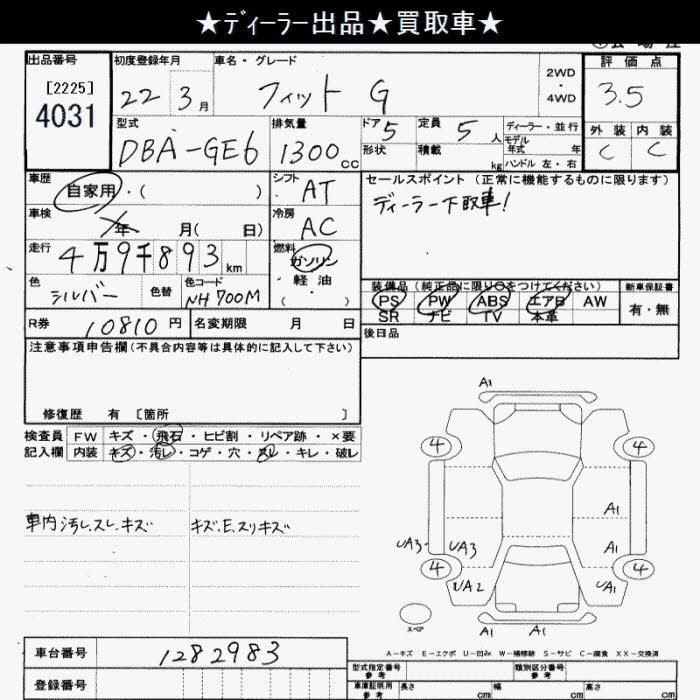 ★ディーラー出品★買取車★
出品番号 初度登録年月 車名・グレード 2WD・4WD 評価点
[2225]
4031 22 3月 フィット G 3.5
型式 排気量 ドア 5 定員 5人 ディーラー・並行 外装 内装
DBA-GE6 1300cc 形状 積載 kg モデル年式 年 C C
ハンドル 左・右
車歴 自家用・( ) シフト AT セールスポイント (正常に機能するものに限ります)
ディーラー下取車!
車検 年 月( 日) 冷房 AC
走行 4万9千893km 燃料 ガソリン・軽油・( )
色 シルバー 色替 色コード NH700M
装備品(純正品に限り○をつけてください) 新車保証書
PS PW ABS エアB AW 有・無
SR ナビ TV 本革
R券 10810円 名変期限 月 日 後日品
注意事項申告欄(不具合内容等は具体的に記入して下さい)
修復歴 有 [箇所 ]
検査員 FW キズ・飛石・ヒビ割・リペア跡・×要
記入欄 内装 キズ・汚レ・コゲ・穴・スレ・キレ・破レ
車内汚レ.スレ.キズ キズ.E.スリキズ
A1
4 4
A1
UA3 UA3 A1
4 4
UA2 UA1
スペア A1 A1
A-キズ E-エクボ U-凹み W-補修跡 S-サビ C-腐食 XX-交換済
車台番号 1282983
型式指定番号 参考 類別区分番号 参考
登録番号 車庫証明用 参考 長さ cm 幅 cm 高さ cm